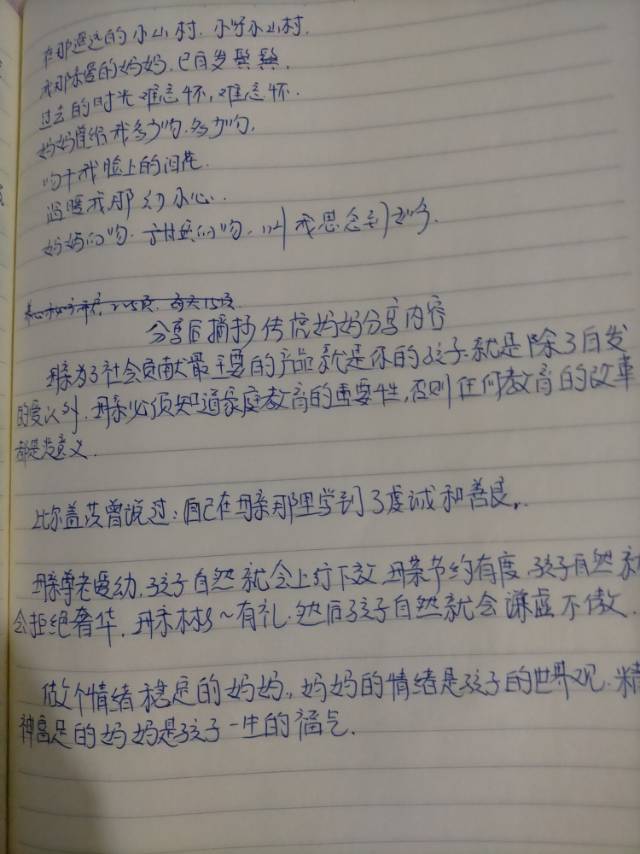 在那遥远的小山村,小呀小山村.
我那亲爱的妈妈,已白发鬓鬓.
过去的时光难忘怀,难忘怀.
妈妈曾给我多少吻,多少吻.
吻干我脸上的泪花.
温暖我那幼小心.
妈妈的吻,甜蜜的吻,叫我思念到如今.
分享后摘抄传虎妈妈分享内容
母亲为了社会贡献最主要的产品就是你的孩子.就是除了自发
的爱以外,母亲必须知道家庭教育的重要性,否则任何教育的改革
都是无意义.
比尔盖茨曾说过:自己在母亲那里学到了虔诚和善良,.
母亲尊老爱幼,孩子自然就会上行下效,母亲节约有度,孩子自然就
会拒绝奢华,母亲彬彬有礼.然后孩子自然就会谦虚不傲.
做个情绪稳定的妈妈,,妈妈的情绪是孩子的世界观.精
神富足的妈妈是孩子一生的福气.